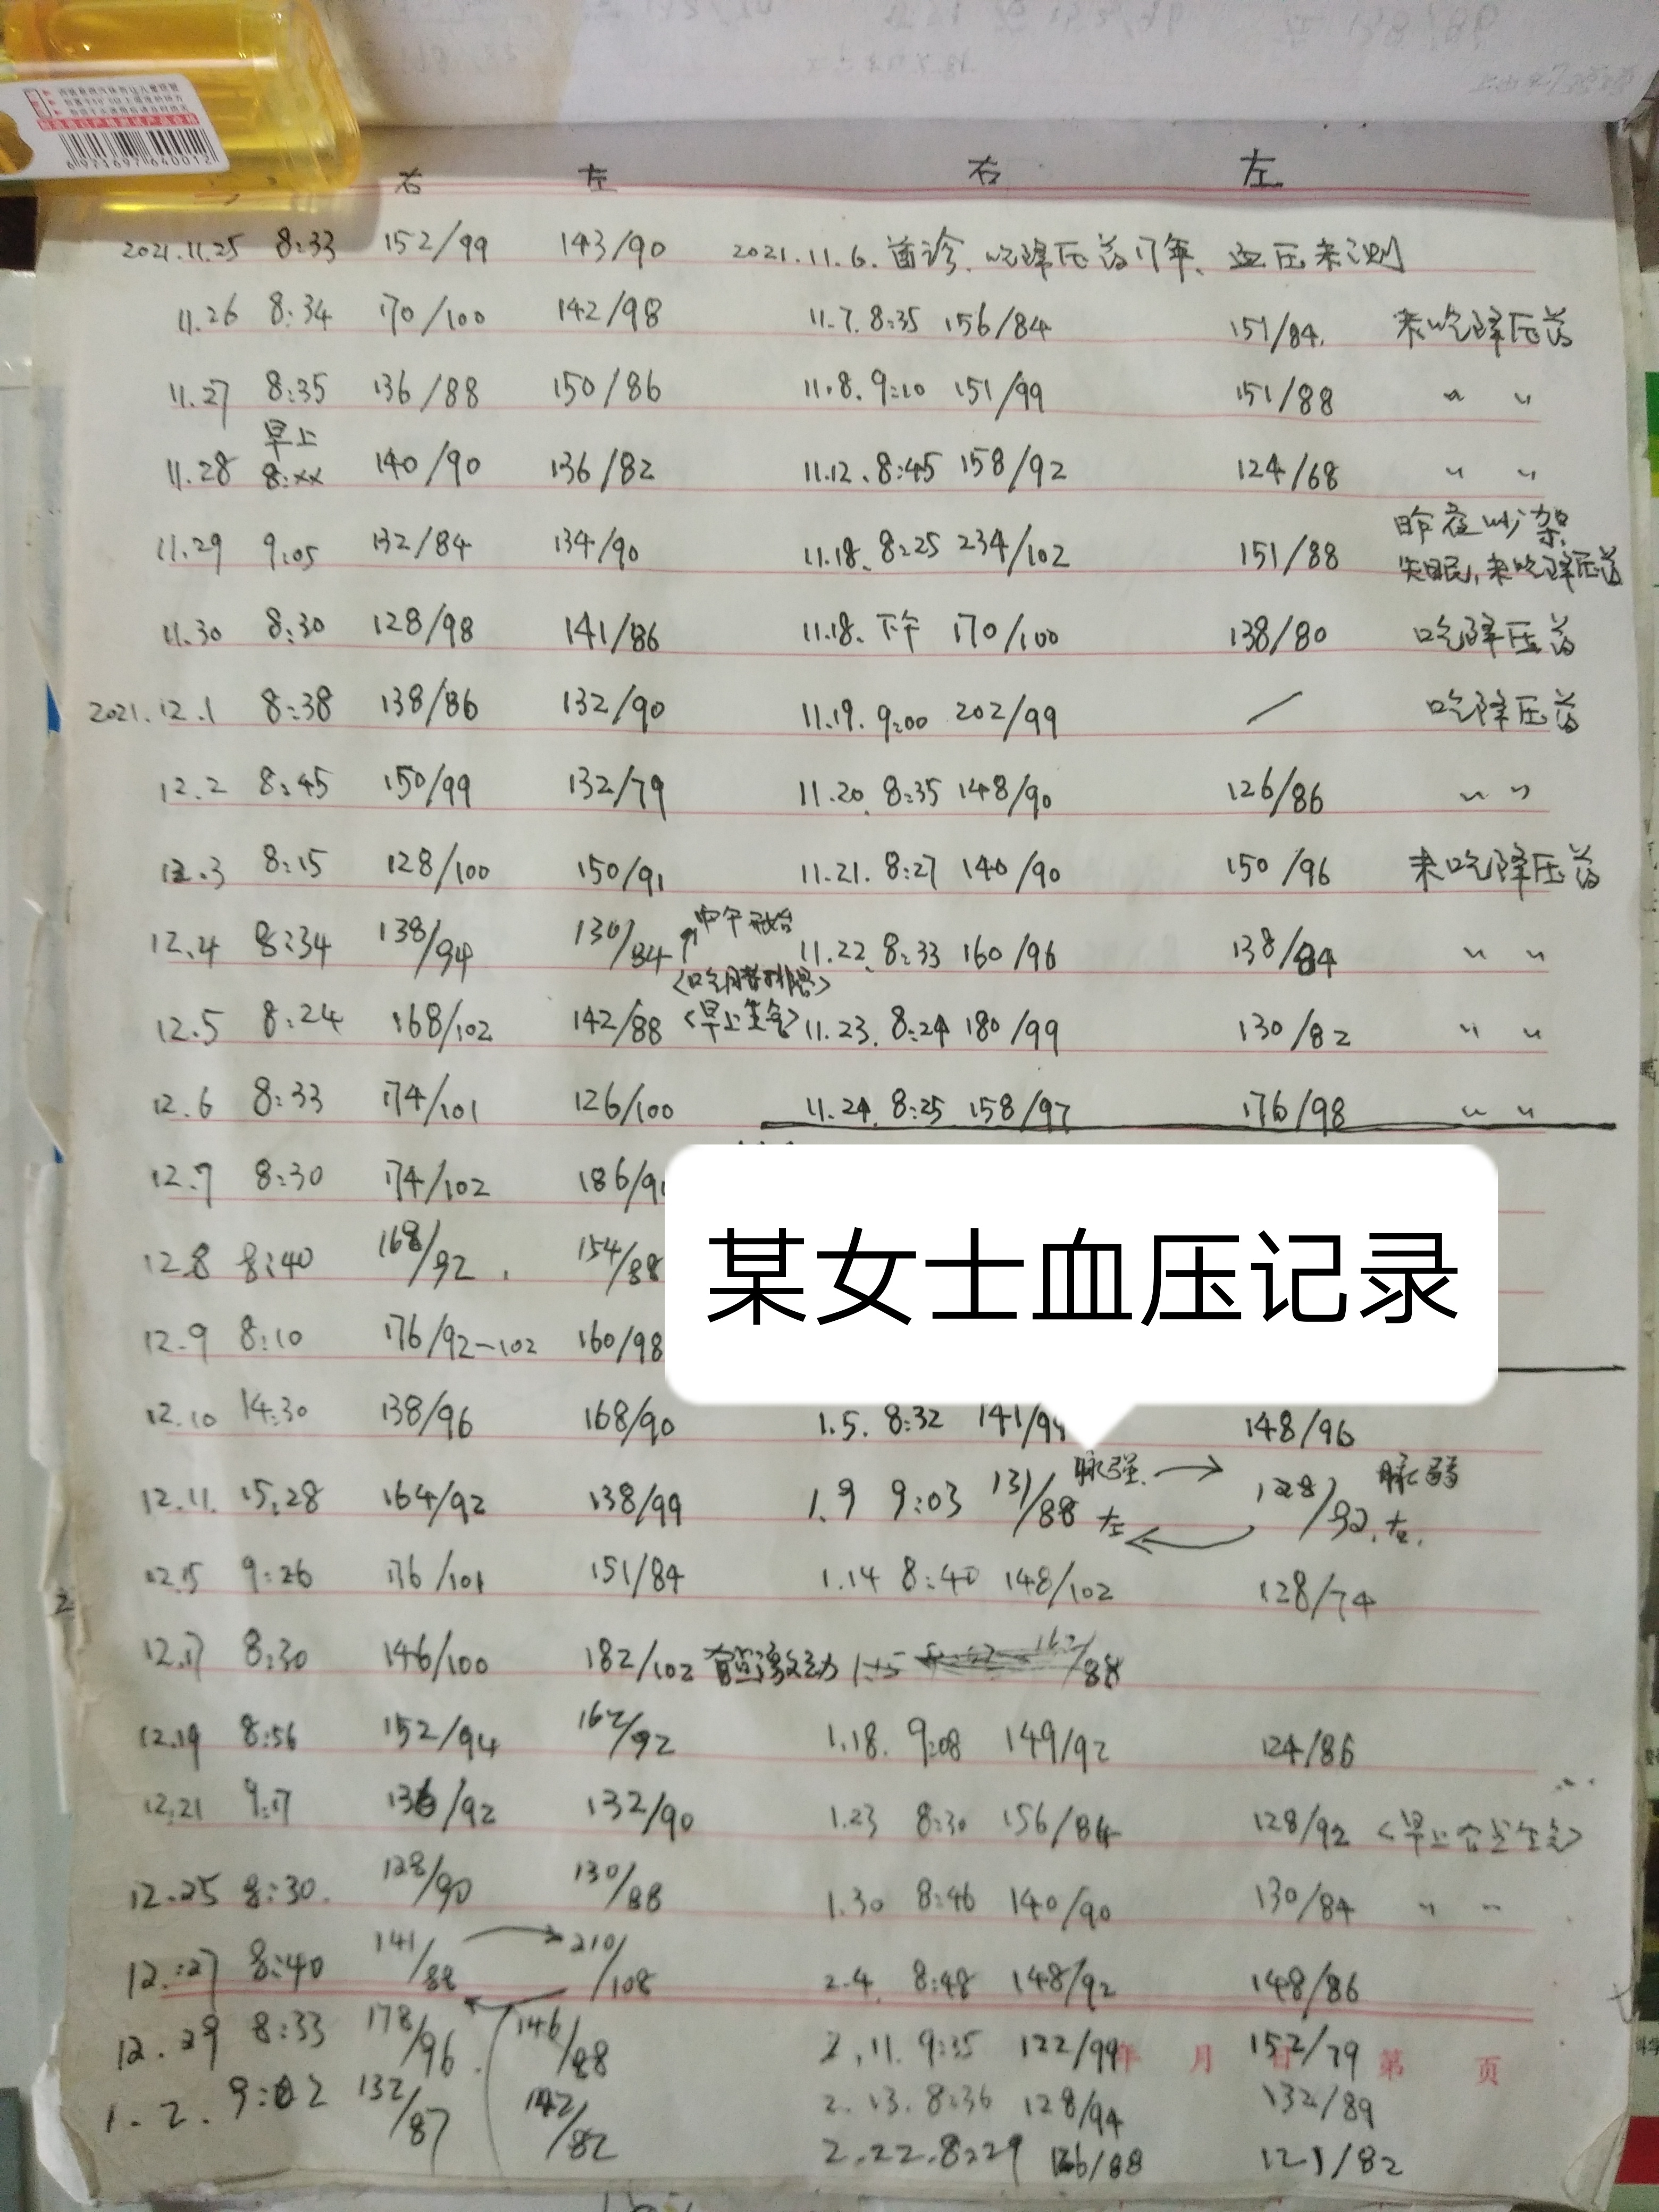 6971697640012
右 左 右 左
2021.11.25 8:33 152/99 143/90 2021.11.6.首诊.吃降压药17年、血压未测
11.26 8:34 170/100 142/98 11.7.8:35 156/84 151/84. 未吃降压药
11.27 8:35 136/88 150/86 11.8.9:10 151/99 151/88 〃 〃
早上
11.28 8:xx 140/90 136/82 11.12.8:45 158/92 124/68 〃 〃
昨夜吵架
11.29 9:05 132/84 134/90 11.18.8:25 234/102 151/88 失眠,未吃降压药
11.30 8:30 128/98 141/86 11.18.下午 170/100 138/80 吃降压药
2021.12.1 8:38 138/86 132/90 11.19.9:00 202/99 / 吃降压药
12.2 8:45 150/99 132/79 11.20.8:35 148/90 126/86 〃 〃
12.3 8:15 128/100 150/91 11.21.8:27 140/90 150/96 未吃降压药
↑中午开始
12.4 8:34 138/94 130/84 11.22.8:33 160/96 138/84 〃 〃
12.5 8:24 168/102 142/88 <早上生气> 11.23.8:24 180/99 130/82 〃 〃
12.6 8:33 174/101 126/100 11.24.8:25 158/97 176/98 〃 〃
12.7 8:30 174/102 186/9
某女士血压记录
12.8 8:40 168/92. 154/88
12.9 8:10 176/92-102 160/98
12.10 14:30 138/96 168/90 1.5.8:32 141/9 148/96
脉强.→ 脉弱
12.11.15:28 164/92 138/99 1.9 9:03 131/88 左 ← 128/92.右.
12.15 9:26 176/101 151/84 1.14 8:40 148/102 128/74
12.17 8:30 146/100 182/102 有点激动 1.15 162/88
12.19 8:56 152/94 162/92 1.18.9:08 149/92 124/86
12.21 9:17 136/92 132/90 1.23 8:30 156/84 128/92 <早上有点生气>
12.25 8:30. 128/90 130/88 1.30 8:46 140/90 130/84 〃 〃
12.27 8:40 141/88 → 210/108 2.4.8:48 148/92 148/86
12.29 8:33 178/96. 146/88 2.11.9:35 122/99 152/79
年 月 日 第 页
1.2.9:02 132/87 142/82 2.13.8:36 128/94 132/89
2.22.8:29 126/88 121/82